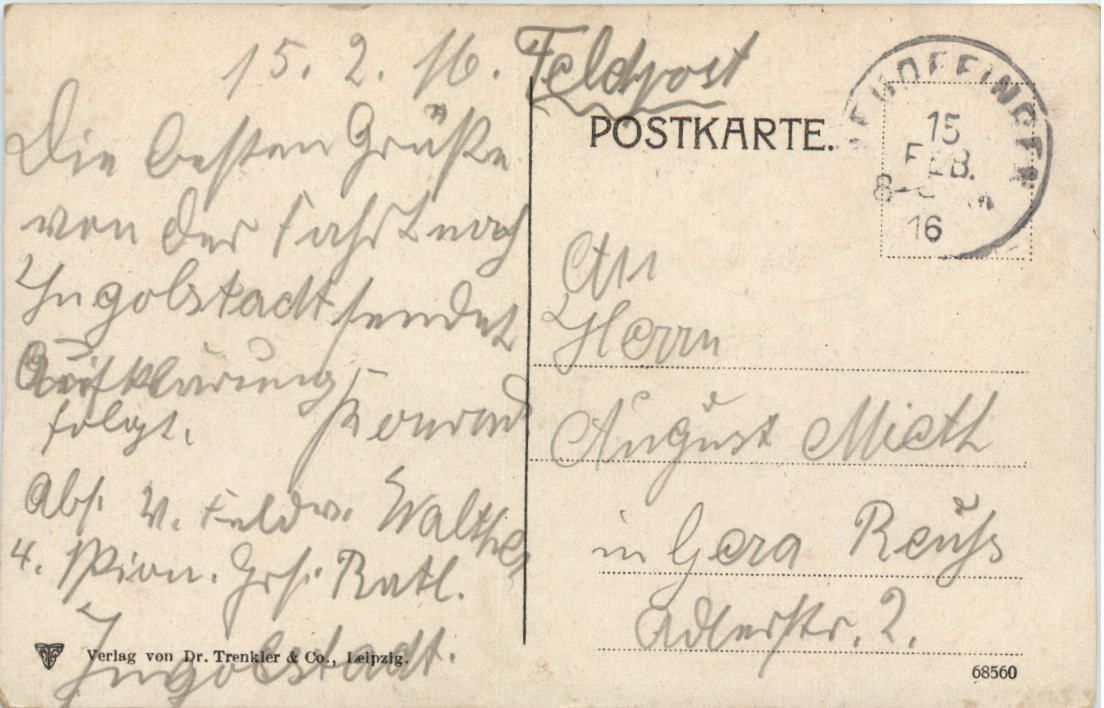 15. 2. 16. Feldpost
Die besten Grüße
von der Fahrt nach
Ingolstadt sendet
Aufklärung Konrad
folgt.
Abs. V. Feldw. Walther
4. Pion. Ers. Batl.
Ingolstadt.
Verlag von Dr. Trenkler & Co., Leipzig.
POSTKARTE.
15
FEB.
16
An
Herrn
August Mieth
in Gera Reuß
Adlerstr. 2.
68560